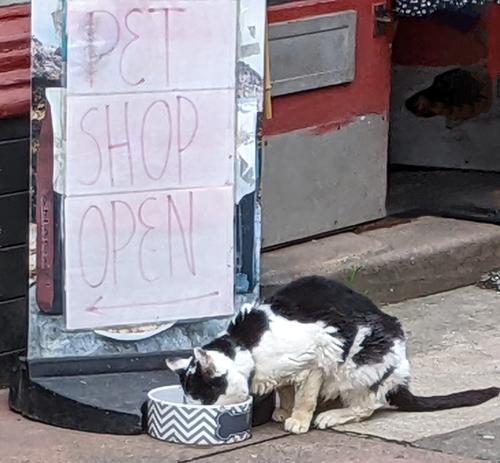 PET
SHOP
OPEN